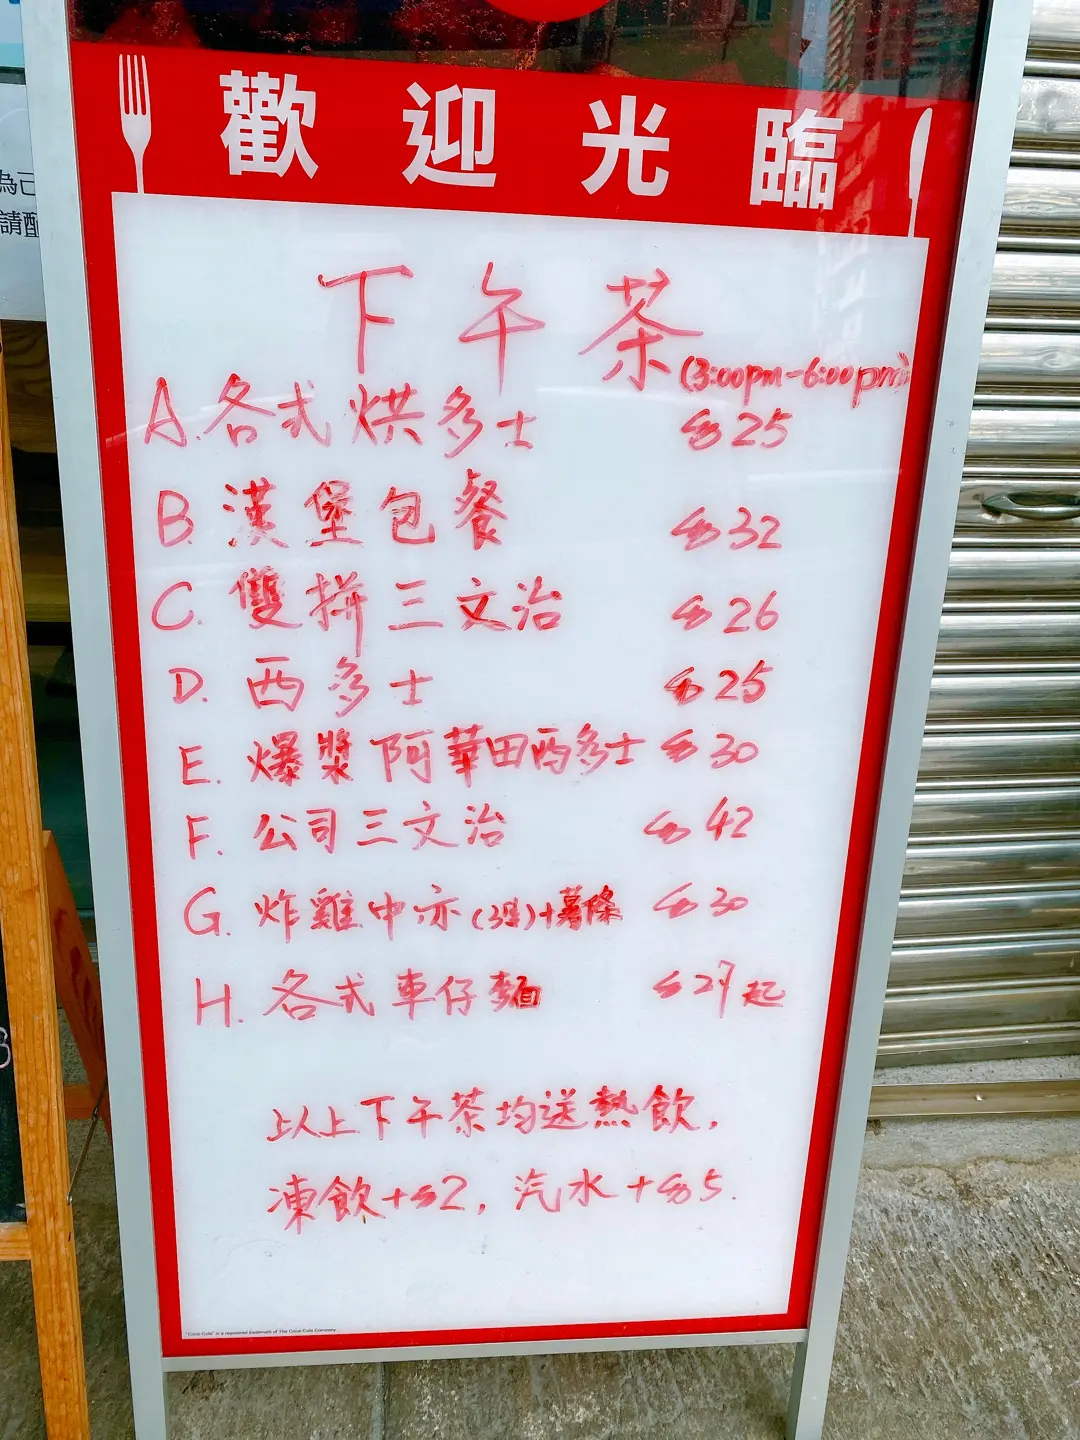 歡迎光臨
下午茶
(3:00pm-6:00pm)
A. 各式烘多士 $25
B. 漢堡包餐 $32
C. 雙拼三文治 $26
D. 西多士 $25
E. 爆漿阿華田西多士 $30
F. 公司三文治 $42
G. 炸雞中亦(3隻)+薯條 $30
H. 各式車仔麵 $27起
以上下午茶均送熱飲,
凍飲+$2, 汽水+$5.
"Coca-Cola" is a registered trademark of The Coca-Cola Company